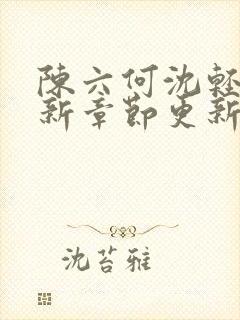 陳六何沈輕
新章節更新
沈苔雅